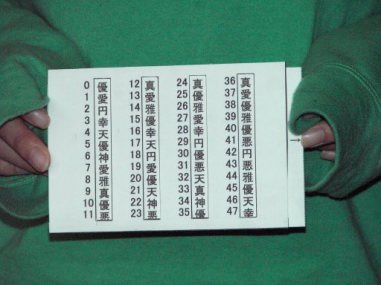 0 優
1 愛
2 円
3 幸
4 天
5 優
6 神
7 愛
8 雅
9 真
10 優
11 悪
12 真
13 愛
14 雅
15 優
16 幸
17 天
18 円
19 愛
20 優
21 天
22 神
23 悪
24 真
25 優
26 雅
27 愛
28 幸
29 円
30 優
31 悪
32 天
33 真
34 神
35 優
36 真
37 愛
38 優
39 雅
40 優
41 悪
42 円
43 悪
44 雅
45 優
46 天
47 幸